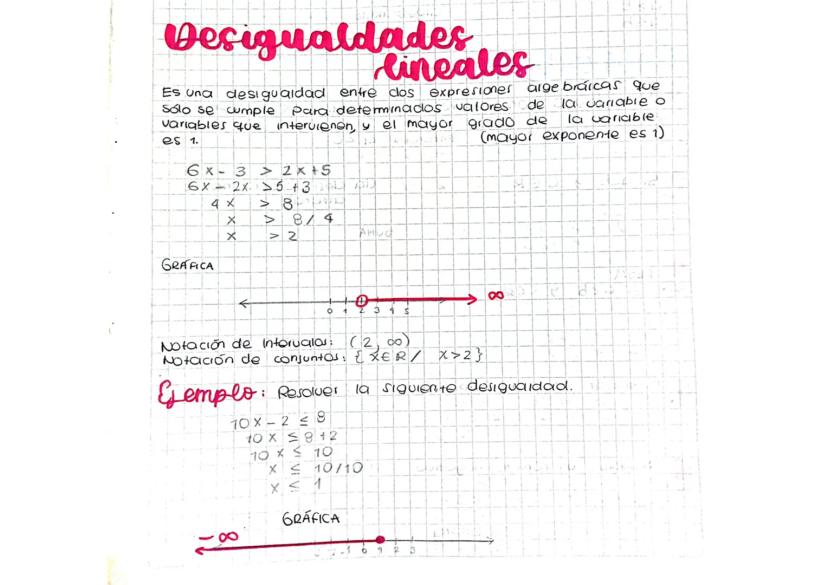 Desigualdades
lineales
Es una desigualdad entre dos expresiones algebráicas que
sólo se cumple para determinados valores de la variable o
variables que intervienen, y el mayor grado de la variable
es 1. (mayor exponente es 1)
6x - 3 > 2x+5
6x - 2x > 5 + 3
4x > 8
x > 8/4
x > 2
GRÁFICA
∞
0 1 2 3 4 5
Notación de Intervalos: (2, ∞)
Notación de conjuntos: { X∈R / X>2}
Ejemplo: Resolver la siguiente desigualdad.
10x - 2 ≤ 8
10x ≤ 8+2
10x ≤ 10
x ≤ 10/10
x ≤ 1
GRÁFICA
-∞
-1 0 1 2 3